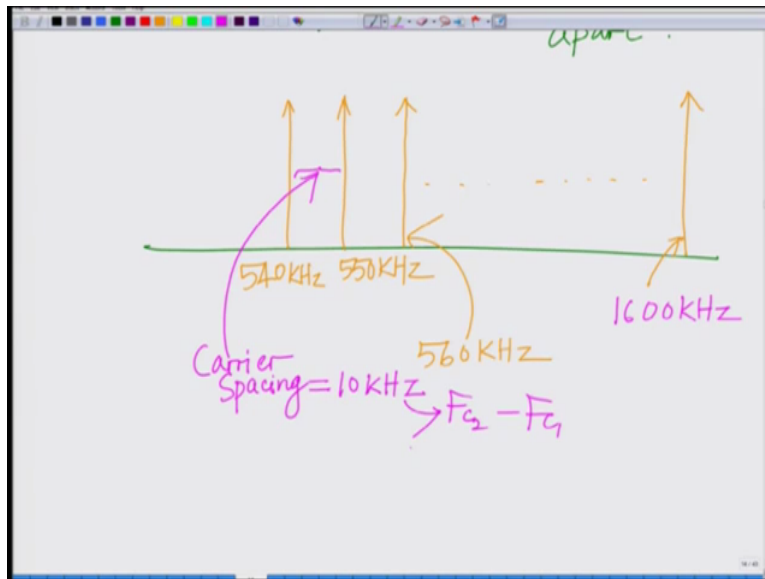 apart.
540KHz 550KHz
1600KHz
560KHz
Carrier
Spacing = 10KHz
Fc2 - Fc1